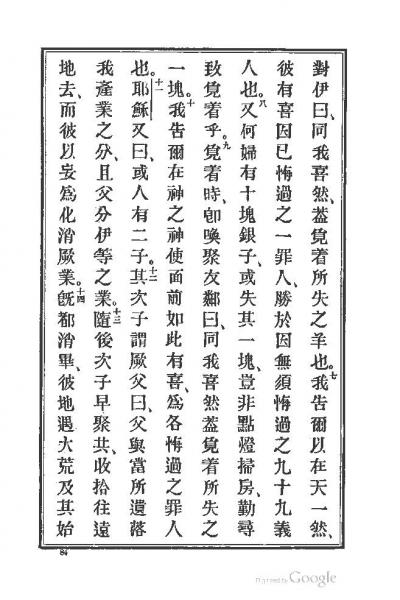 對伊曰、同我喜然、蓋覓着所失之羊也。七我告爾以在天一然、
彼有喜因已悔過之一罪人、勝於因無須悔過之九十九義
人也。八又何婦有十塊銀子、或失其一塊、豈非點燈掃房、勤尋
致覓着乎。九覓着時、卽喚聚友鄰曰、同我喜然蓋覓着所失之
一塊。十我告爾在神之神使面前如此有喜、爲各悔過之罪人
也。十一耶穌又曰、或人有二子。十二其次子謂厥父曰、父與當所遺落
我產業之分、且父分伊等之業。十三隨後次子早聚共、收拾往遠
地去、而彼以妄爲化消厥業。十四旣都消畢、彼地遇大荒及其始
84
Digitized by Google